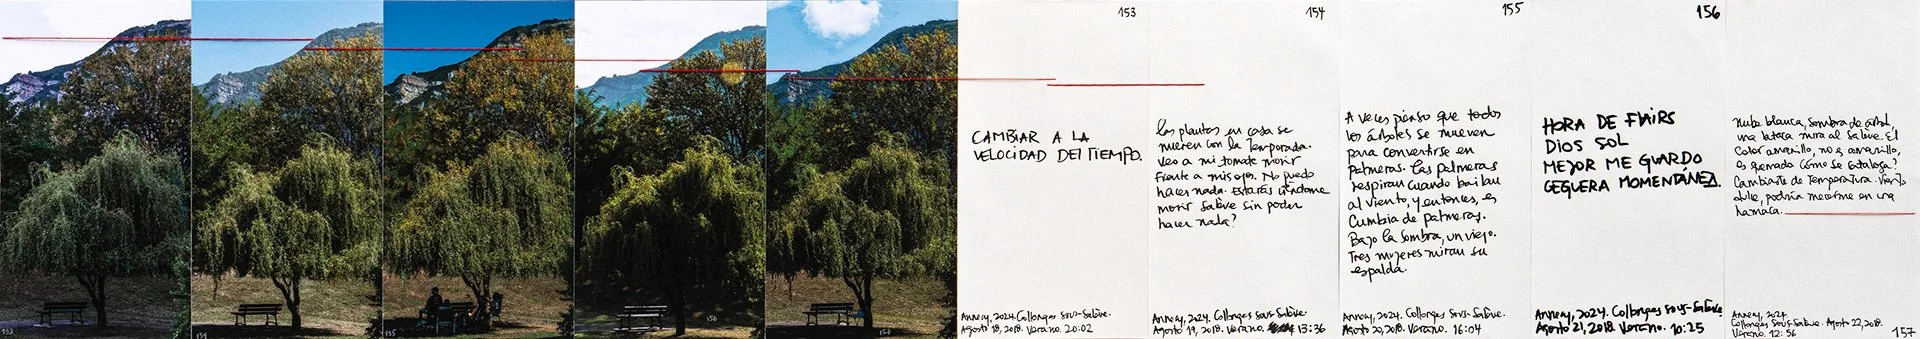 153
154
155
156
157
153
CAMBIAR A LA
VELOCIDAD DEL TIEMPO.
Annecy, 2024. Collonges Sous-Salève.
Agosto 18, 2018. Verano. 20:02
154
Las plantas en casa se
mueren con la Temporada.
Veo a mi tomate morir
frente a mis ojos. No puedo
hacer nada. Estarás viéndome
morir Salève sin poder
hacer nada?
Annecy, 2024. Collonges Sous-Salève.
Agosto 19, 2018. Verano. 13:36
155
A veces pienso que todos
los árboles se mueven
para convertirse en
Palmeras. Las palmeras
respiran cuando bailan
al viento, y entonces, es
Cumbia de palmeras.
Bajo la sombra, un viejo.
Tres mujeres miran su
espalda.
Annecy, 2024. Collonges Sous-Salève.
Agosto 20, 2018. Verano. 16:04
156
HORA DE
DIOS SOL
MEJOR ME GUARDO
CEGUERA MOMENTÁNEA.
Annecy, 2024. Collonges Sous-Salève
Agosto 21, 2018. Verano. 10:25
Nube blanca, sombra de árbol,
una butaca mira al Salève. El
Color amarillo, no es amarillo,
es quemado Cómo se cataloga?
Cambiante de Temperatura. Viento
dulce, podría mecerme en una
hamaca.
Annecy, 2024.
Collonges Sous-Salève. Agosto 22, 2018.
Verano. 12:56
157